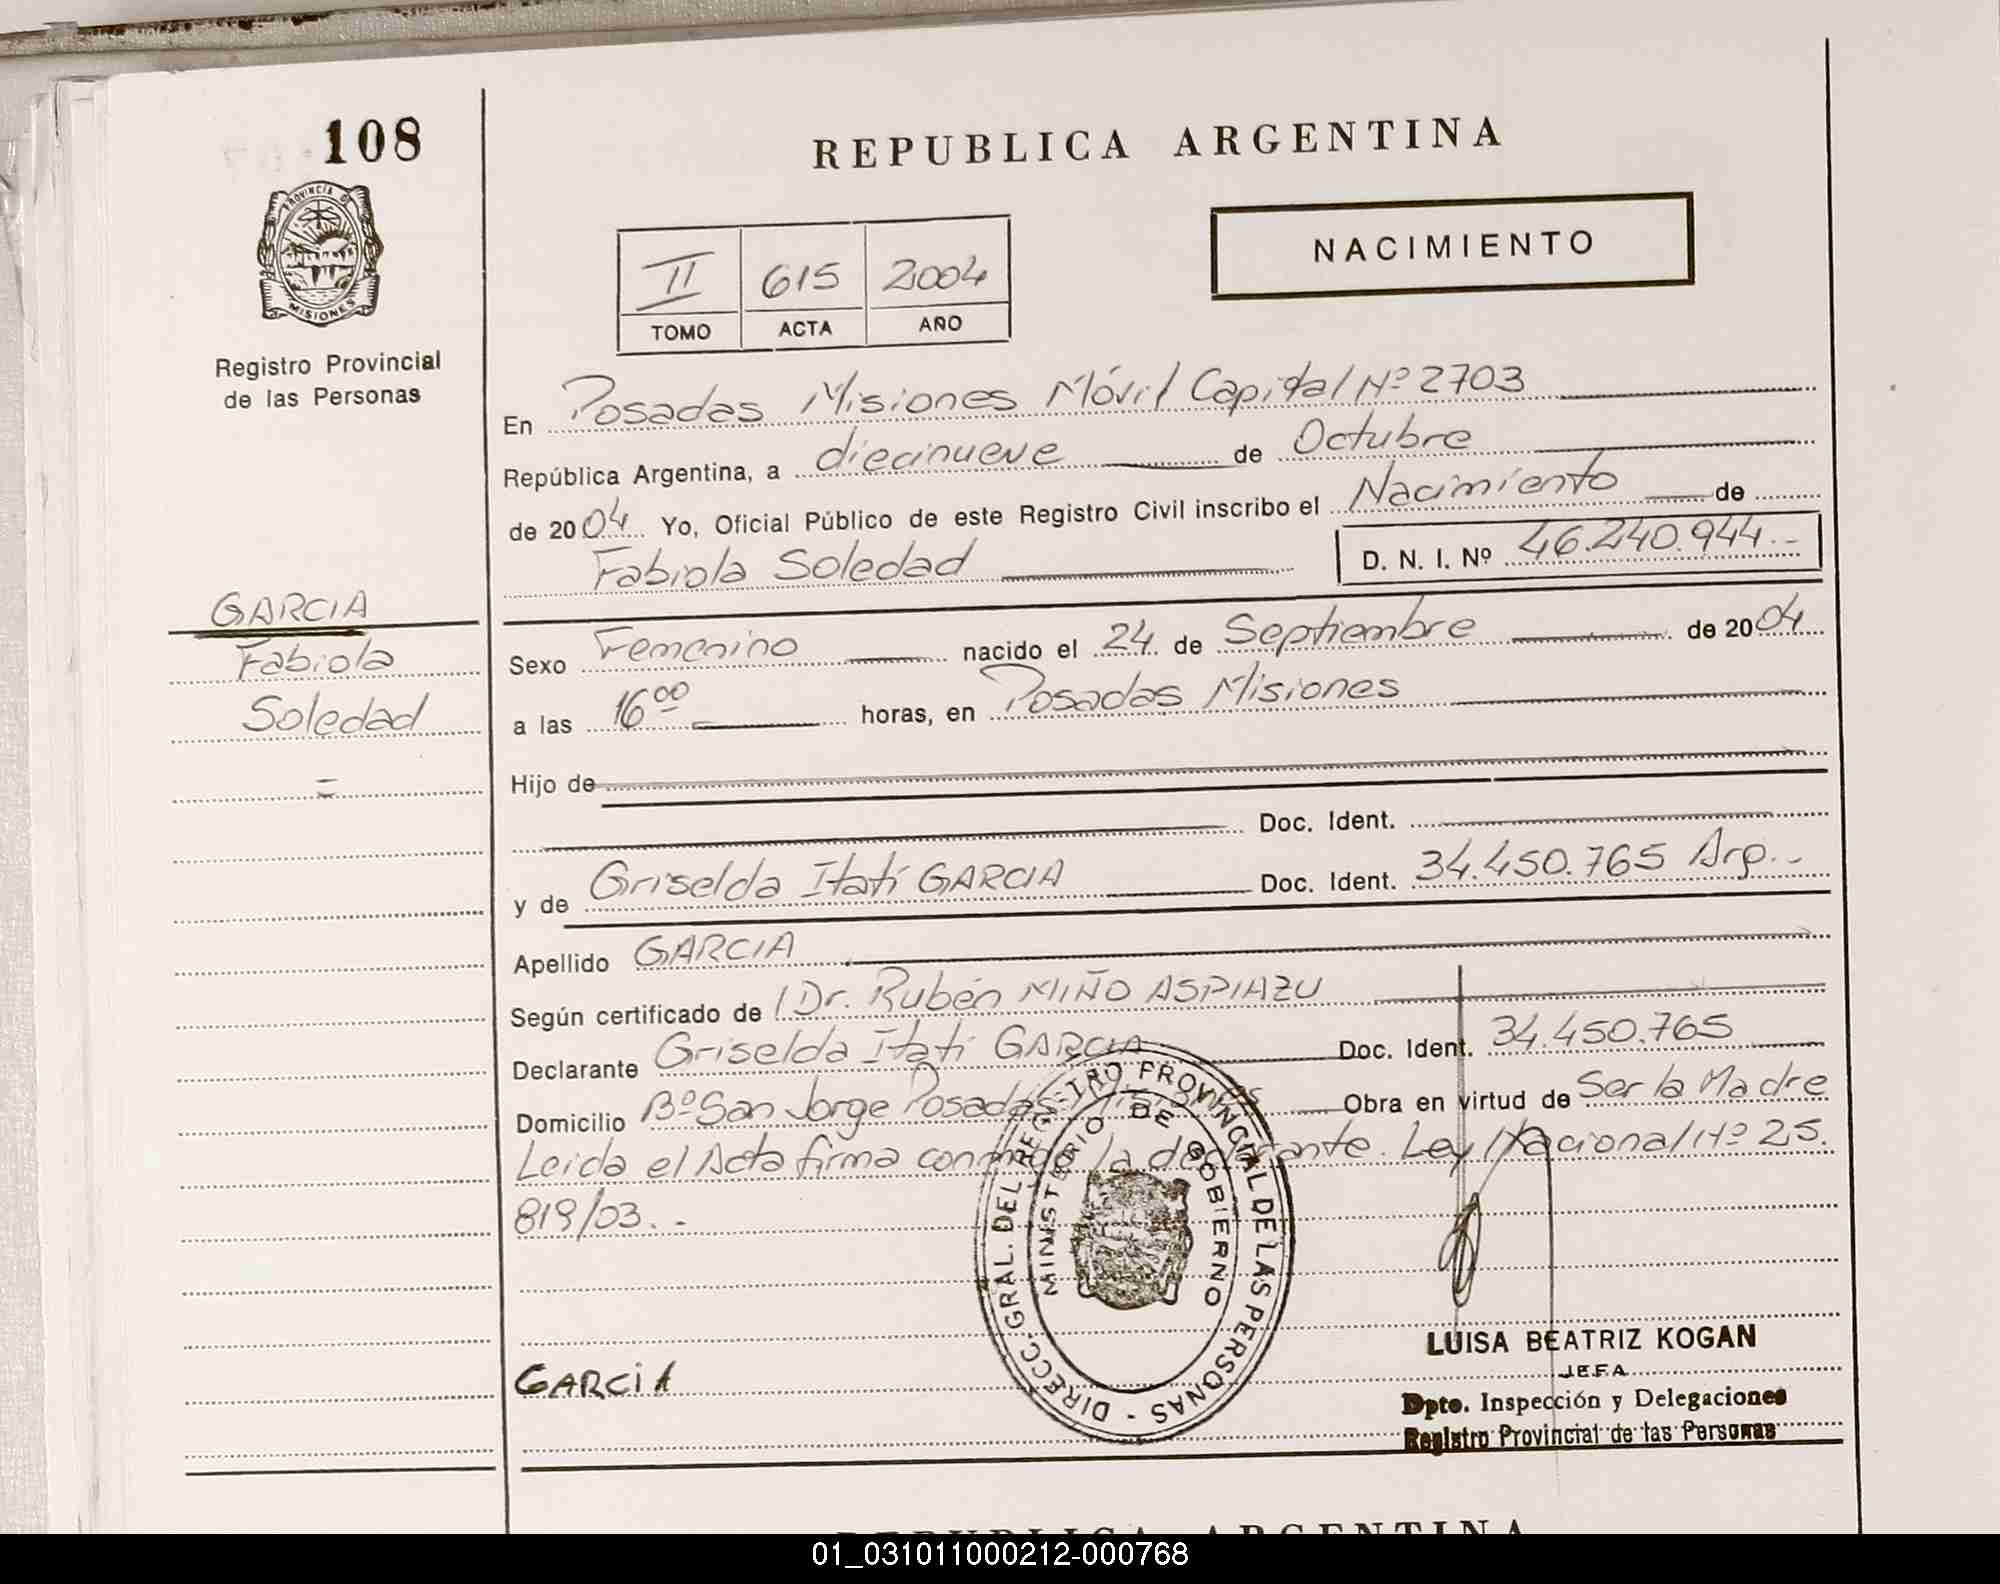 108
PROVINCIA DE
MISIONES
Registro Provincial
de las Personas
GARCIA
Fabiola
Soledad
REPUBLICA ARGENTINA
NACIMIENTO
II 615 2004
TOMO ACTA AÑO
En Posadas Misiones Móvil Capital Nº 2703
República Argentina, a diecinueve de Octubre
de 2004 Yo, Oficial Público de este Registro Civil inscribo el Nacimiento de
Fabiola Soledad D. N. I. Nº 46.240.944.-
Sexo Femenino nacido el 24 de Septiembre de 2004
a las 16⁰⁰ horas, en Posadas Misiones
Hijo de
Doc. Ident.
y de Griselda Itatí GARCIA Doc. Ident. 34.450.765 Arg.-
Apellido GARCIA
Según certificado de Dr. Rubén MIÑO ASPIAZU
Declarante Griselda Itatí GARCIA Doc. Ident. 34.450.765
Domicilio Bº San Jorge Posadas Misiones Obra en virtud de Ser la Madre
Leída el Acta firma conmigo la declarante. Ley Nacional Nº 25.
819/03.-
DIRECC. GRAL. DEL REGISTRO PROVINCIAL DE LAS PERSONAS -
MINISTERIO DE GOBIERNO
GARCIA
LUISA BEATRIZ KOGAN
JEFA
Dpto. Inspección y Delegaciones
Registro Provincial de las Personas
REPUBLICA ARGENTINA
01_031011000212-000768